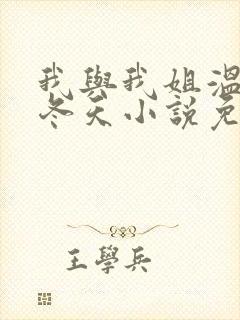 我與我姐溫
冬天小說免
王學兵